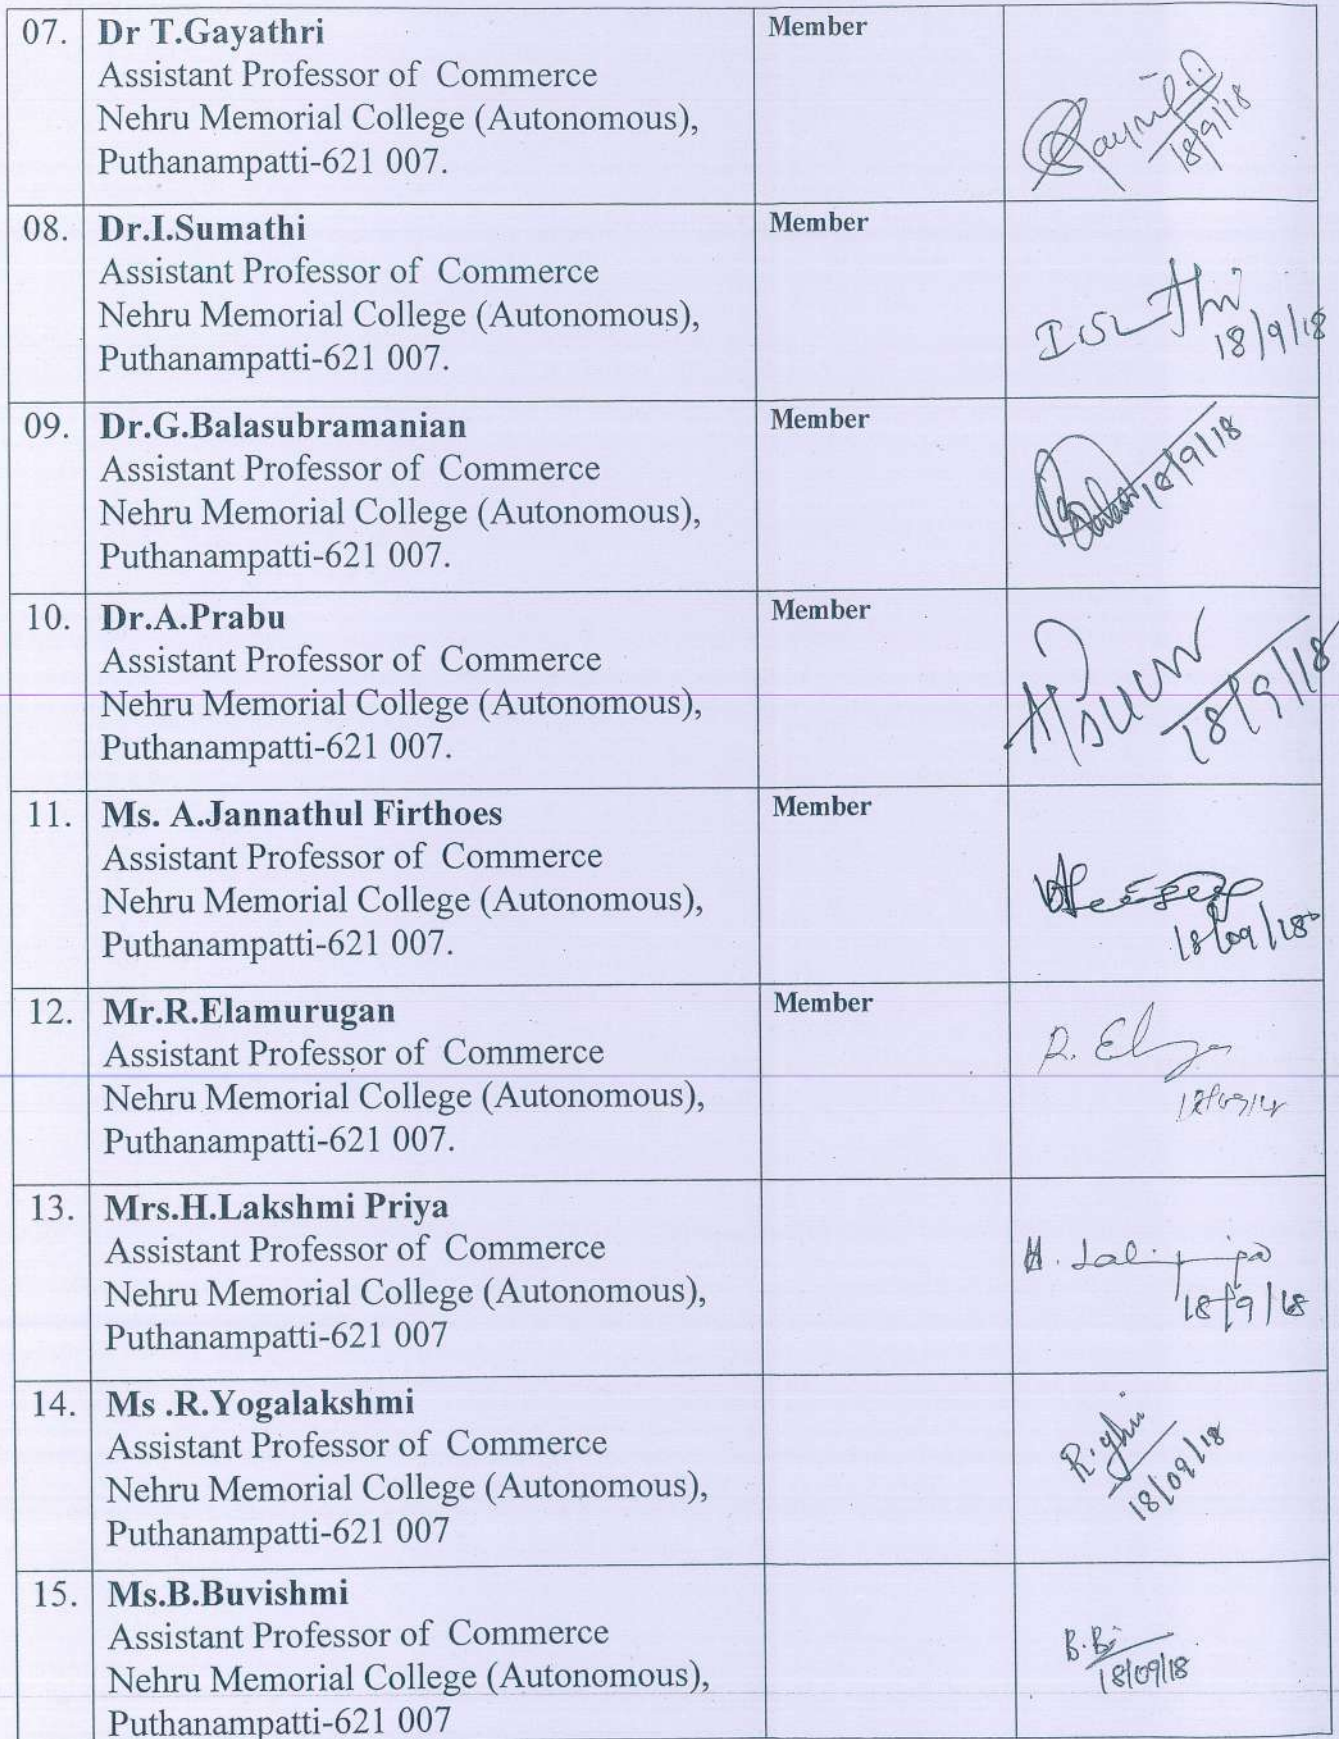 07. Dr T.Gayathri Member
Assistant Professor of Commerce
Nehru Memorial College (Autonomous),
Puthanampatti-621 007.
18/9/18
08. Dr.I.Sumathi Member
Assistant Professor of Commerce
Nehru Memorial College (Autonomous),
Puthanampatti-621 007.
18/9/18
09. Dr.G.Balasubramanian Member
Assistant Professor of Commerce
Nehru Memorial College (Autonomous),
Puthanampatti-621 007.
18/9/18
10. Dr.A.Prabu Member
Assistant Professor of Commerce
Nehru Memorial College (Autonomous),
Puthanampatti-621 007.
18/9/18
11. Ms. A.Jannathul Firthoes Member
Assistant Professor of Commerce
Nehru Memorial College (Autonomous),
Puthanampatti-621 007.
18/09/18
12. Mr.R.Elamurugan Member
Assistant Professor of Commerce
Nehru Memorial College (Autonomous),
Puthanampatti-621 007.
13. Mrs.H.Lakshmi Priya
Assistant Professor of Commerce
Nehru Memorial College (Autonomous),
Puthanampatti-621 007
18/9/18
14. Ms .R.Yogalakshmi
Assistant Professor of Commerce
Nehru Memorial College (Autonomous),
Puthanampatti-621 007
18/09/18
15. Ms.B.Buvishmi
Assistant Professor of Commerce
Nehru Memorial College (Autonomous),
Puthanampatti-621 007
18/09/18